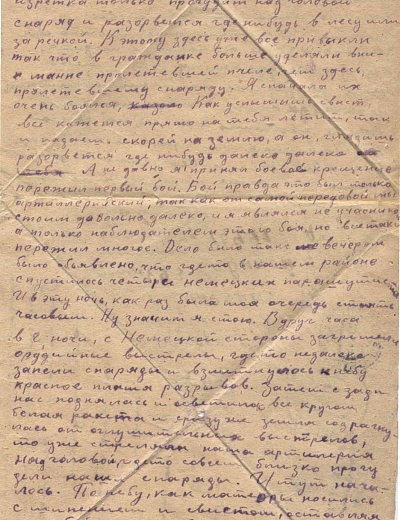 изредка только прогудит над головой
снаряд и разорвется где нибудь в лесу или
за речкой. К этому здесь уже все привыкли
так что в гражданке больше уделяли вни-
мание пролетевшей пчеле, чем здесь
пролетевшему снаряду. Я сначала их
очень боялся, Как услышишь свист
все кажется прямо на тебя летит, так
и падаешь скорей на землю, а он, глядишь
разорвется где нибудь далеко далеко
А не давно я принял боевое крещение
пережил первый бой. Бой правда это был только
артиллерийский, так как от самой передовой мы
стоим довольно далеко, и я являлся не участником
а только наблюдателем этого боя, но все таки
пережил многое. Дело было так вечером
было объявлено, что где то в нашем районе
спустилось четыре немецких парашютиста
И в эту ночь, как раз была моя очередь стоять
часовым. Ну значит я стою. Вдруг часа
в 2 ночи, с Немецкой стороны загремели
орудийные выстрелы, где то недалеко
запели снаряды и взметнулось к небу
красное пламя разрывов. Затем с зади
нас поднялась и осветила все кругом
белая ракета и сразу же земля содрогну-
лась от оглушительных выстрелов,
то уже стреляла наша артилерия
Над головой где то совсем близко прогу
дели наши снаряды. И тут нача-
лось. По небу, как метеоры носились
с шипением и свистом, оставляя